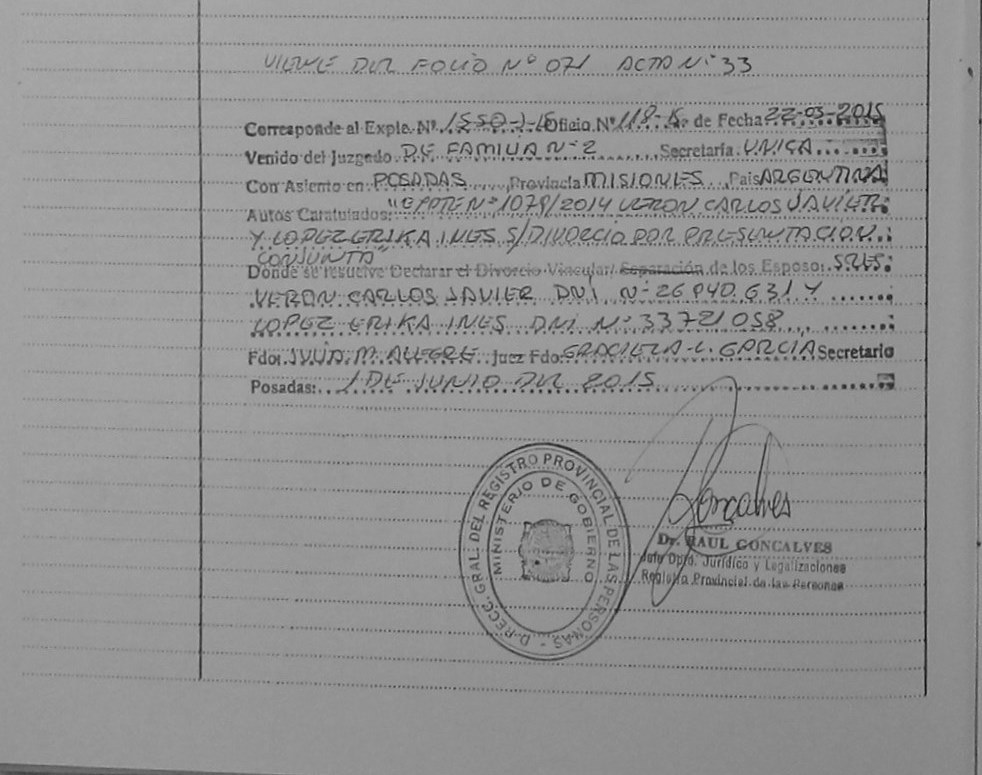 VIENE DEL FOLIO Nº 071 ACTA Nº 33
Corresponde al Expte. Nº 1550-J-15 Oficio Nº 118-15 de Fecha 22-05-2015
Venido del Juzgado DE FAMILIA Nº 2 Secretaría UNICA
Con Asiento en POSADAS Provincia MISIONES País ARGENTINA
Autos Caratulados: "EXPTE Nº 1079/2014 VERON CARLOS JAVIER
Y LOPEZ ERIKA INES S/DIVORCIO POR PRESENTACION
CONJUNTA"
Donde se resuelve Declarar el Divorcio Vincular/ Separación de los Esposo: SRES.
VERON CARLOS JAVIER DNI Nº 26.940.631 Y
LOPEZ ERIKA INES DNI Nº 33721058
Fdo: M. ALEGRE Juez Fdo: GRACIELA L. GARCIA Secretario
Posadas: 1 DE JUNIO DEL 2015
Goncalves
Dr. RAUL GONCALVES
Jefe Dpto. Jurídico y Legalizaciones
Registro Provincial de las Personas
D·RECC. GRAL. DEL REGISTRO PROVINCIAL DE LAS PERSONAS -
MINISTERIO DE GOBIERNO